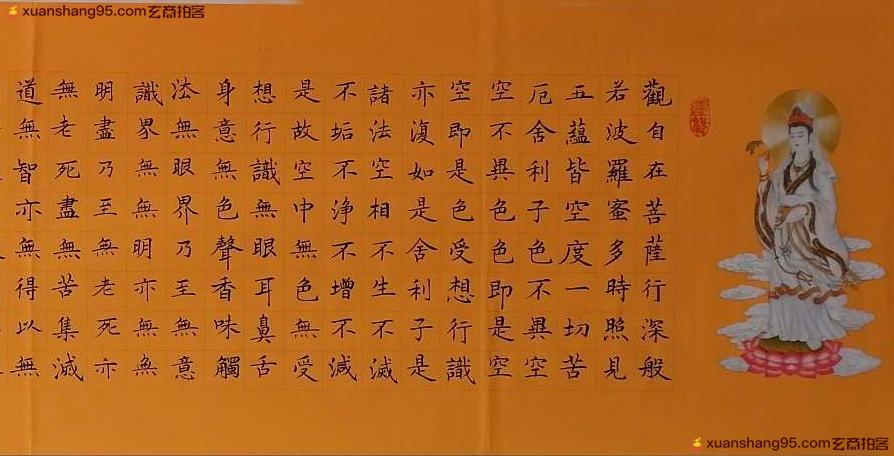 xuanshang95.com玄商拍客
觀自在菩薩行深般
若波羅蜜多時照見
五蘊皆空度一切苦
厄舍利子色不異空
空不異色色即是空
空即是色受想行識
亦復如是舍利子是
諸法空相不生不滅
不垢不淨不增不減
是故空中無色無受
想行識無眼耳鼻舌
身意無色聲香味觸
法無眼界乃至無意
識界無無明亦無無
明盡乃至無老死亦
無老死盡無苦集滅
道無智亦無得以無
xuanshang95.com玄商拍客